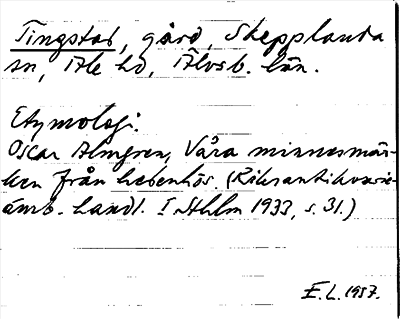 Tingstad, gård, Skepplanda
sn, Ale hd, Älvsb. län.
Etymologi:
Oscar Almgren, Våra minnesmär-
ken från hedenhös. (Riksantikvarie-
ämb. handl. I Sthlm 1933, s. 31.)
E.L. 1937.